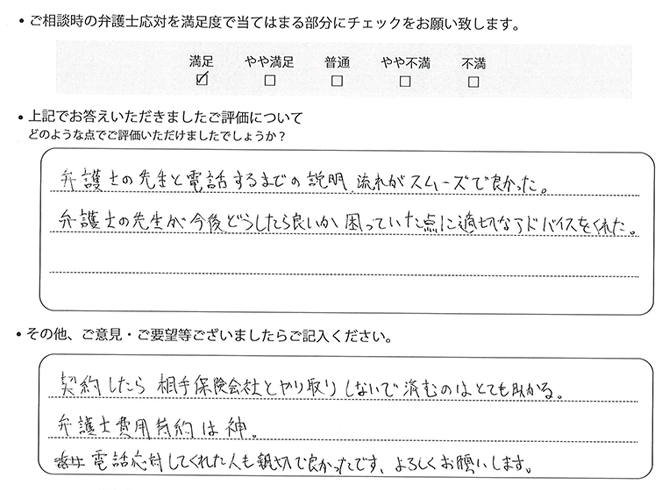 • ご相談時の弁護士応対を満足度で当てはまる部分にチェックをお願い致します。
満足 やや満足 普通 やや不満 不満
☑ □ □ □ □
• 上記でお答えいただきましたご評価について
どのような点でご評価いただけましたでしょうか？
弁護士の先生と電話するまでの説明、流れがスムーズで良かった。
弁護士の先生が今後どうしたら良いか困っていた点に適切なアドバイスをくれた。
• その他、ご意見・ご要望等ございましたらご記入ください。
契約したら相手保険会社とやり取りしないで済むのはとても助かる。
弁護士費用特約は神。
電話応対してくれた人も親切で良かったです、よろしくお願いします。